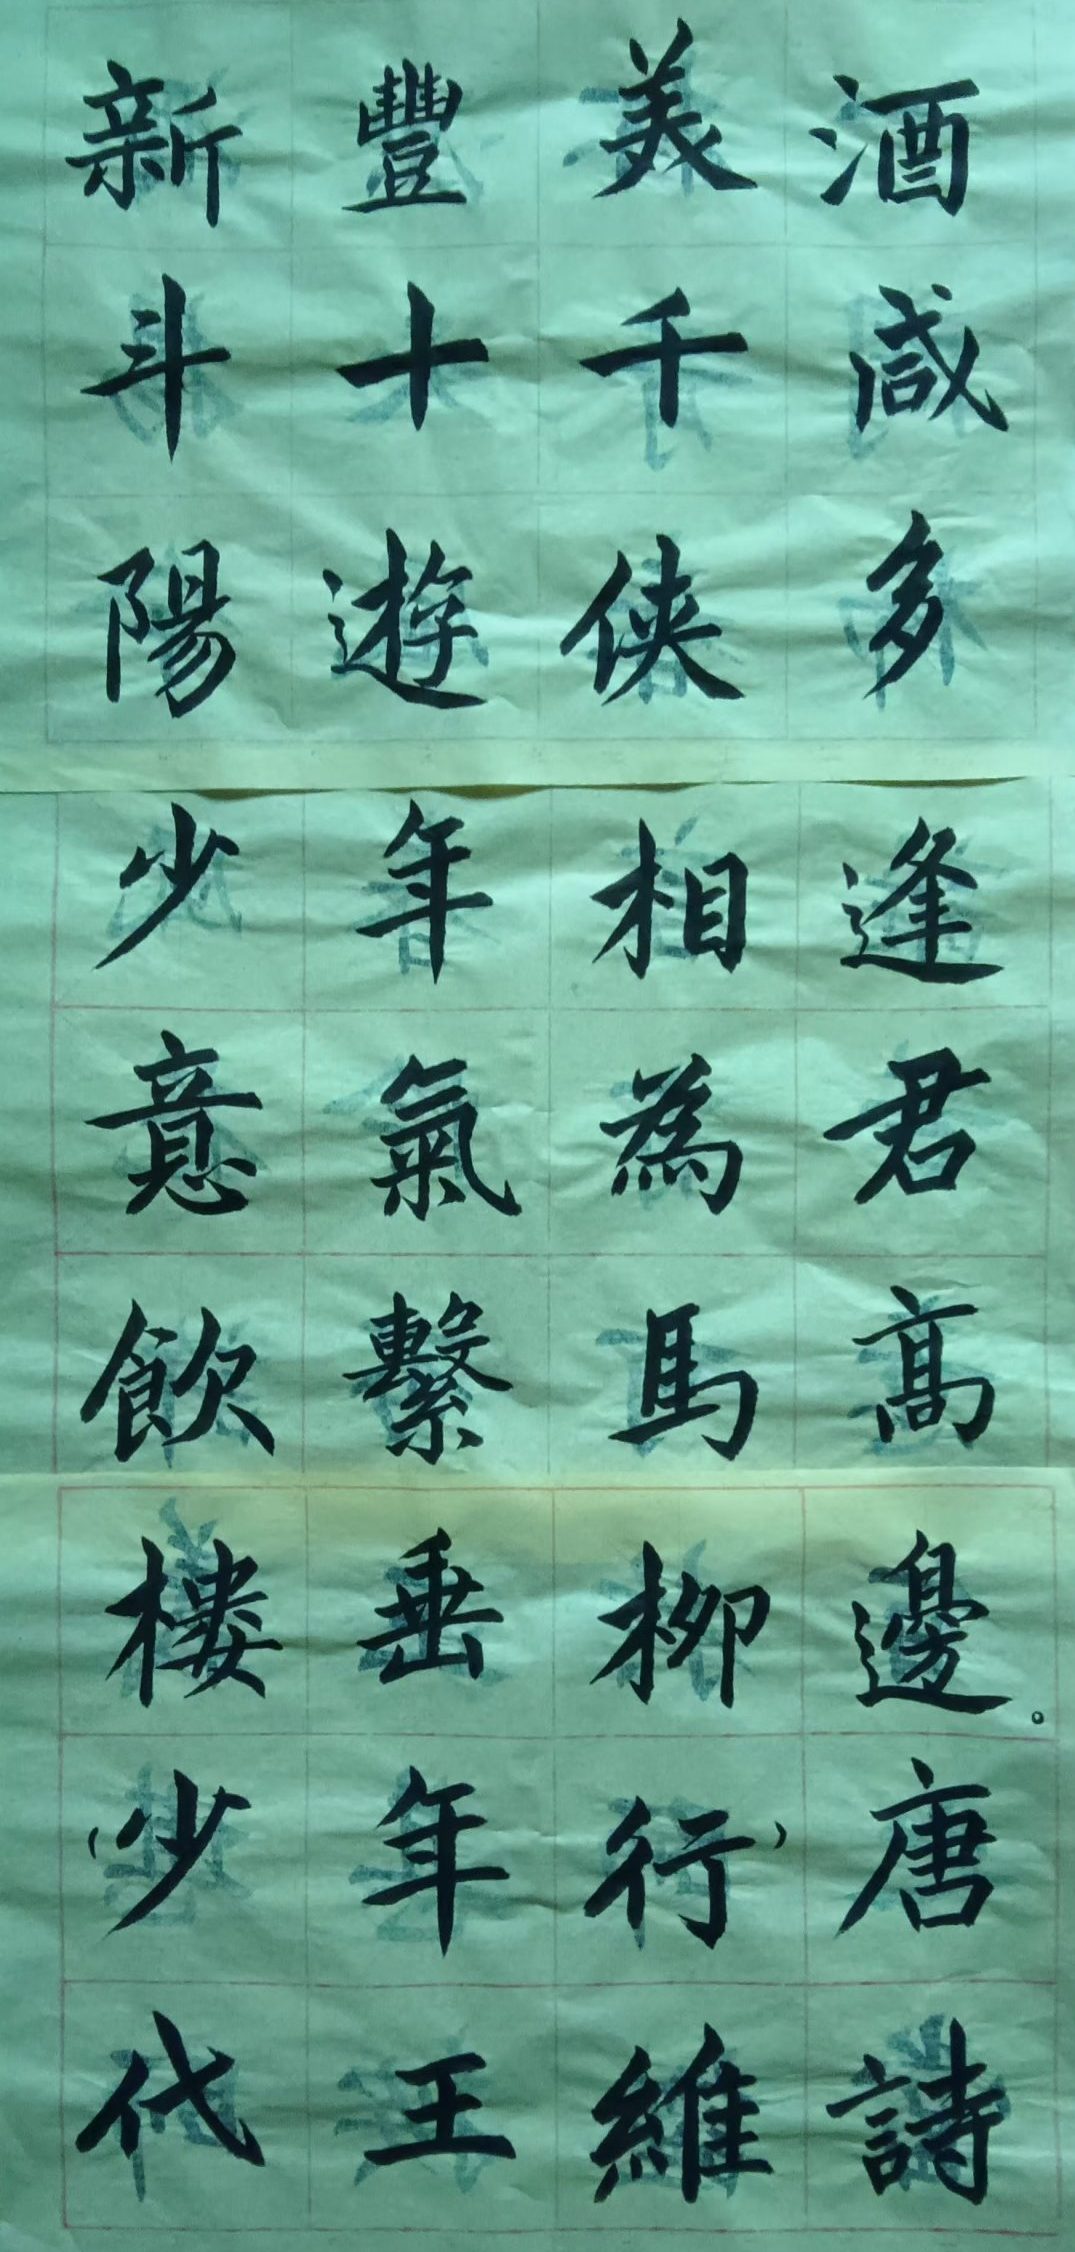 新豐美酒
斗十千咸
陽遊俠多
少年相逢
意氣為君
飲繫馬高
樓垂柳邊。
(少年行)唐
代王維詩